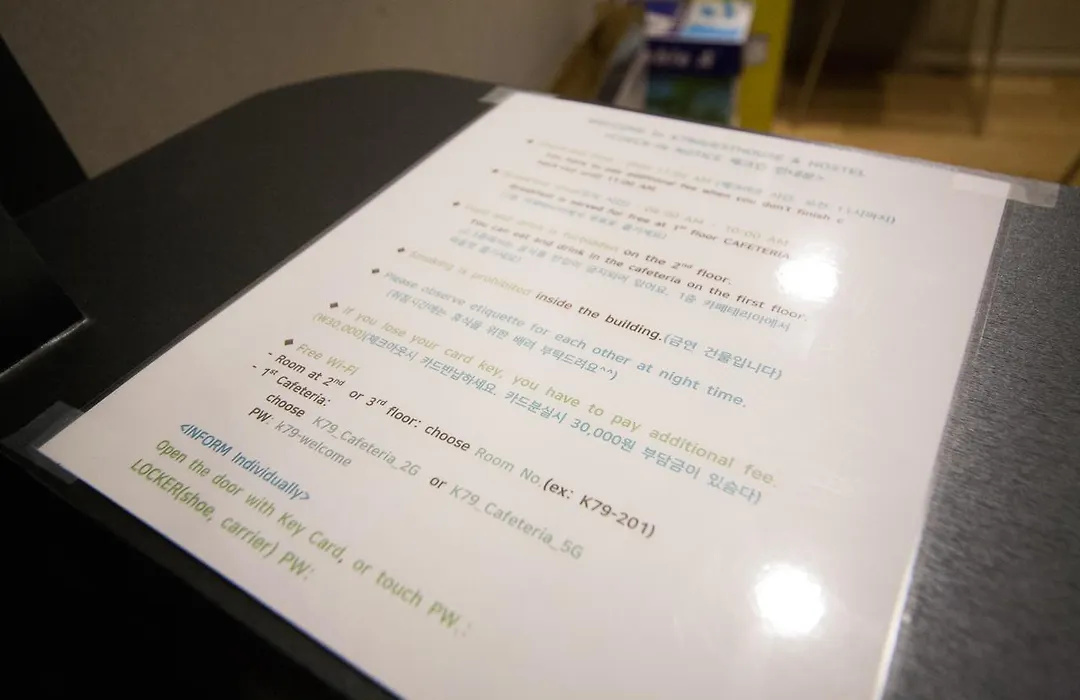 WELCOME to K79GUESTHOUSE & HOSTEL
<CHECK-IN NOTICE 체크인 안내문>
11:00 AM (체크아웃 시간: 오전 11시까지)
You have to pay additional fee when you don't finish c
out until 11:00 AM
08:00 AM ~ 10:00 AM
Breakfast is served for free at 1st floor CAFETERIA
Food and drink is forbidden on the 2nd floor.
You can eat and drink in the cafeteria on the first floor.
1층 카페테리아에서
◆ Smoking is prohibited inside the building.(금연 건물입니다)
◆ Please observe etiquette for each other at night time.
(취침시간에는 휴식을 위한 배려 부탁드려요^^)
◆ If you lose your card key, you have to pay additional fee.
(₩30,000)(체크아웃시 카드반납하세요. 카드분실시 30,000원 부담금이 있습다)
◆ Free Wi-Fi
- Room at 2nd or 3rd floor: choose Room No.(ex: K79-201)
- 1st Cafeteria:
choose K79_Cafeteria_2G or K79_Cafeteria_5G
PW: k79-welcome
<INFORM Individually>
Open the door with Key Card, or touch PW.:
LOCKER(shoe, carrier) PW: